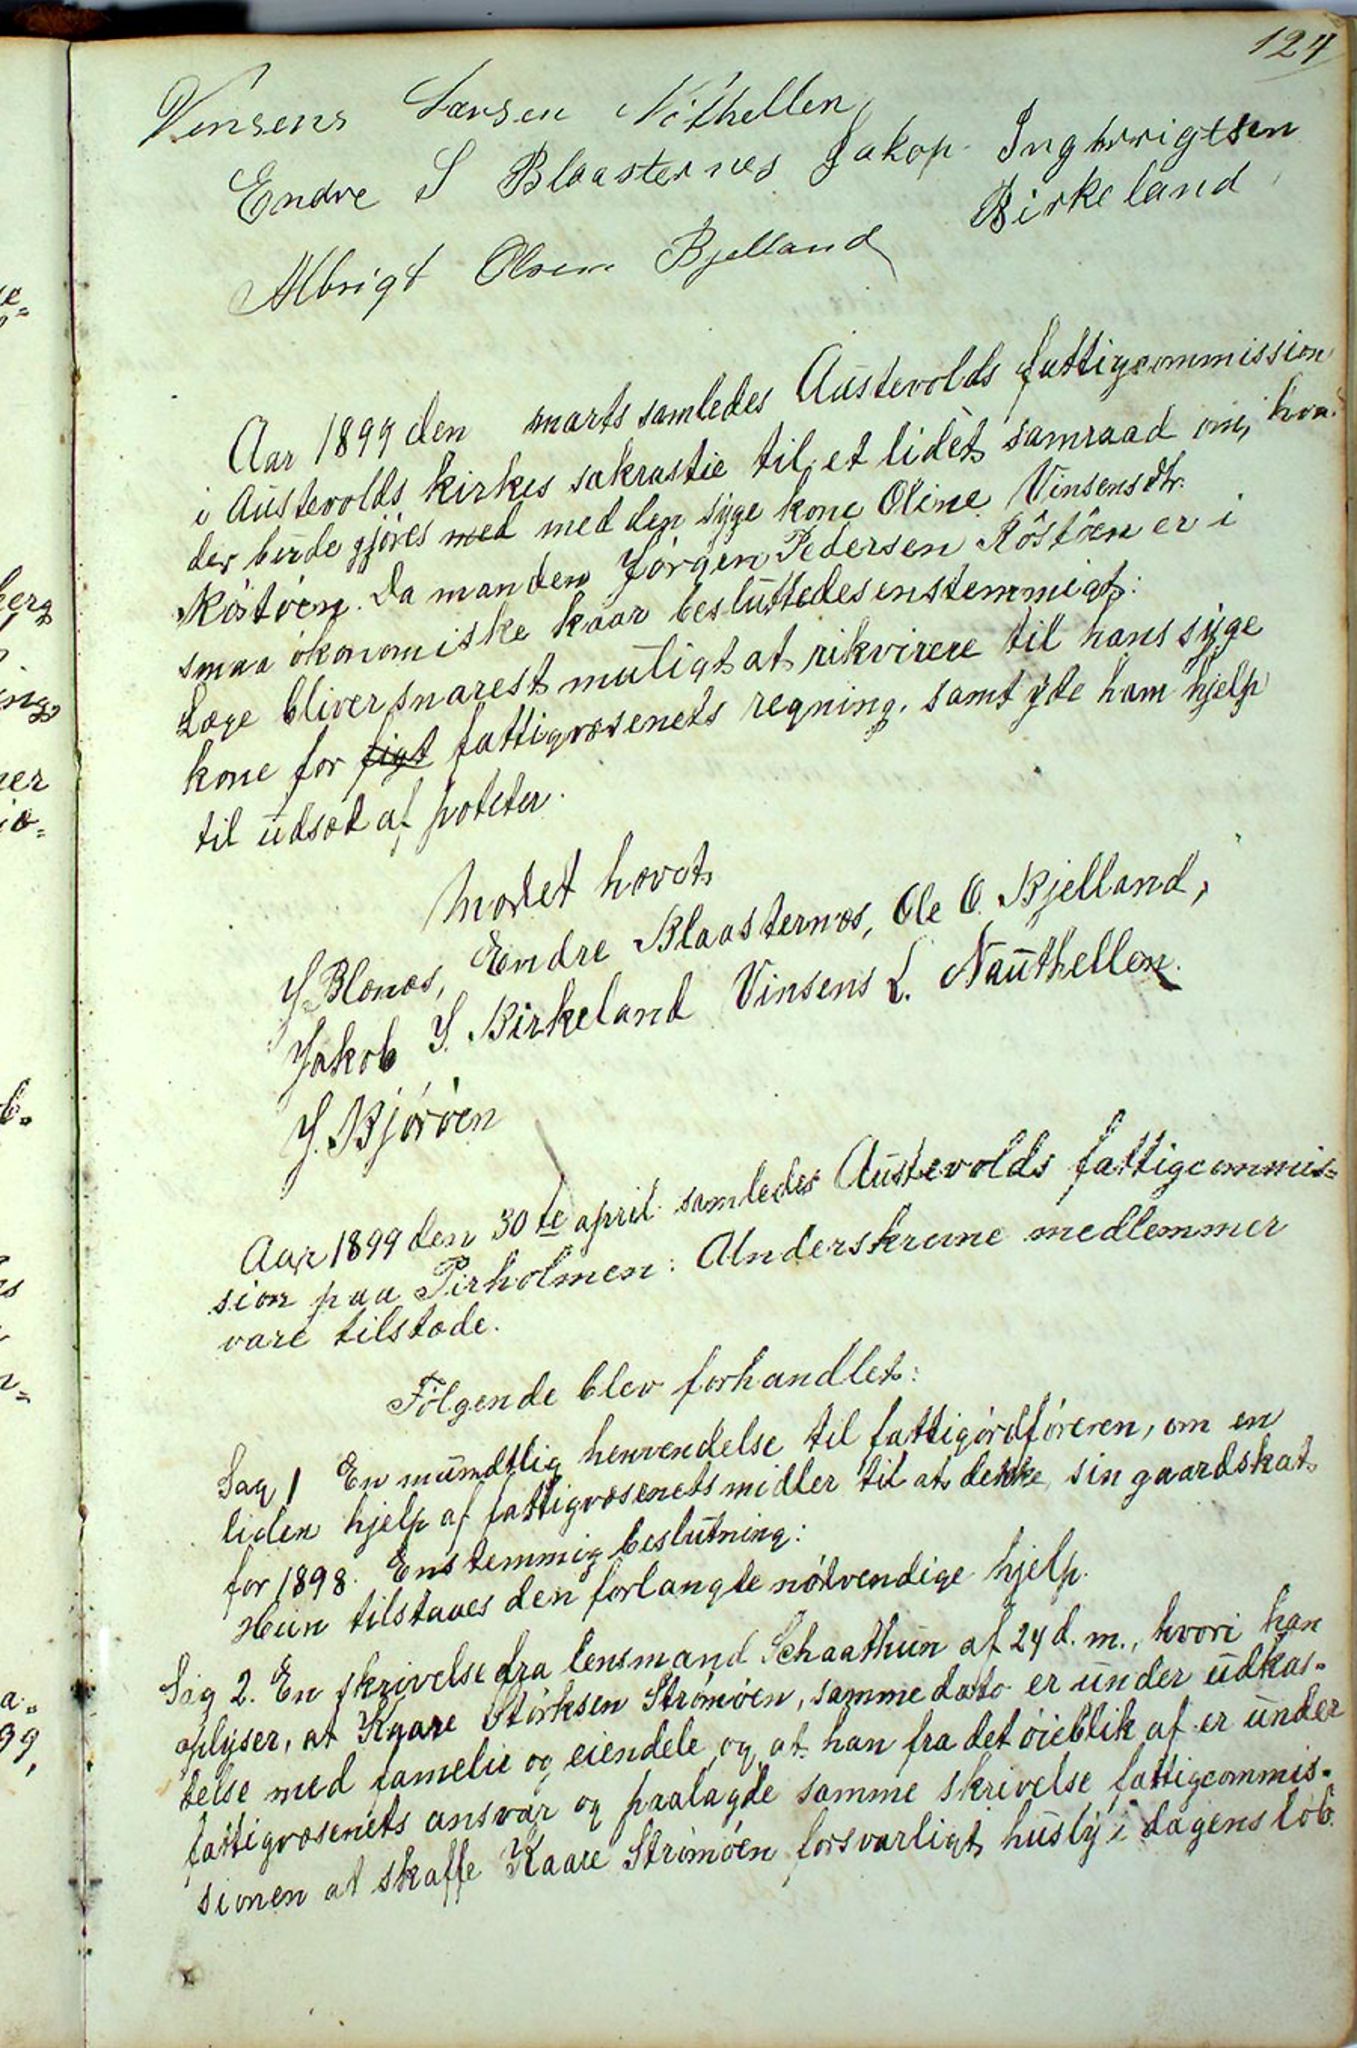 124
Vinsens Larsen Nöthellen
Endre S Blaasternes Jakop Ingbrrigtsen
Birkeland
Albrigt Olsen Bjelland
Aar 1899 den marts samledes Austevolds fattigcommission
i Austevolds kirkes sakrastie til et lidet samraad om, hvad
der burde gjöres med med den syge kone Oline Vinsensdtr.
Röstöen. Da manden Jörgen Pedersen Röstöen er i
smaa ökonomiske kaar besluttedes enstemmigt:
Læge bliver snarest muligt at rikvirere til hans syge
kone for figt fattigvæsenets regning, samt yde ham hjelp
til udsæd af poteter.
Mödet hævet
J. Blænes, Endre Blaasternæs, Ole O. Bjelland,
Jakob I. Birkeland Vinsens L. Nauthellen.
J. Björöen
Aar 1899 den 30te april samledes Austevolds fattigcommis=
sion paa Pirholmen: Underskrevne medlemmer
vare tilstæde.
Fölgende blev forhandlet:
Sag 1 En mundtlig henvendelse til fattigördföreren, om en
liden hjelp af fattigvæsenets midler til at dekke sin gaardskat
for 1898. Enstemmig beslutning:
Hun tilstaaes den forlangte nödvendige hjelp.
Sag 2. En skrivelse fra lensmand Schaathun af 24 d. m., hvori han
oplyser, at Kaare Störksen Strömöen, samme dato er under udkas=
telse med famelie og eiendele og at han fra det öieblik af er under
fattigvæsenets ansvar og paalagde samme skrivelse fattigcommis=
sionen at skaffe Kaare Strömöen forsvarligt husly i dagens löb.